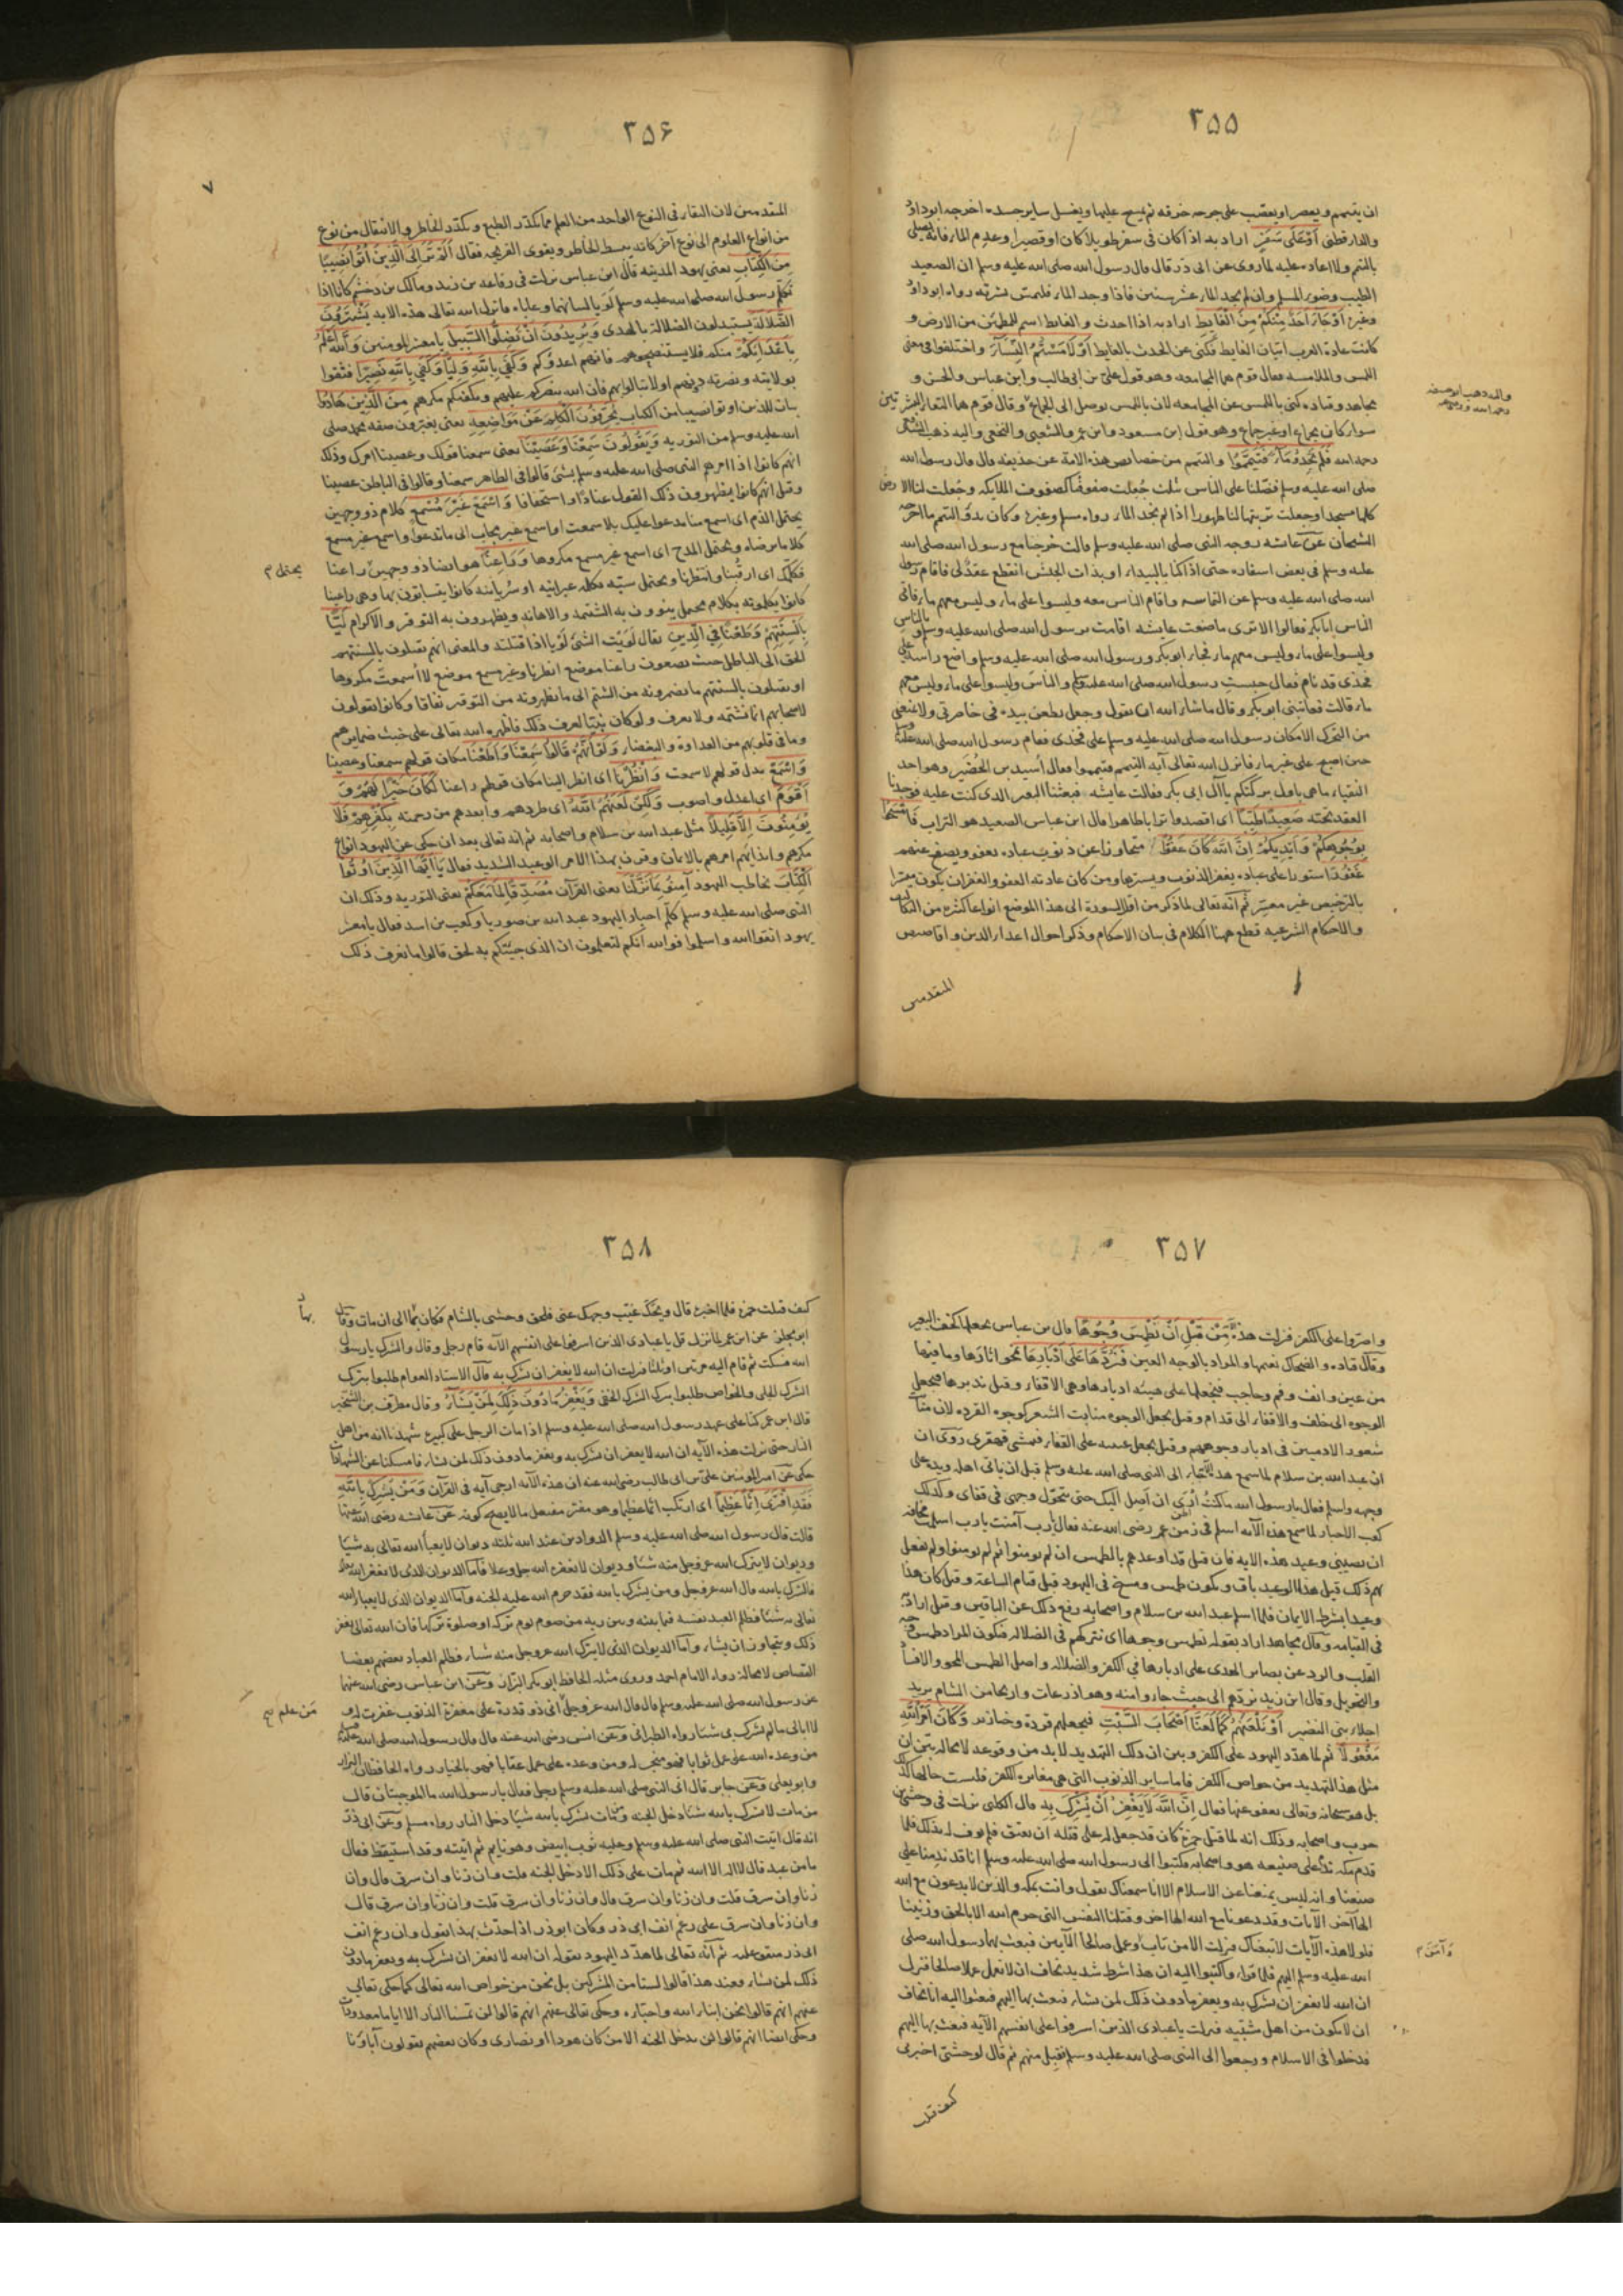 ٣٥٥
ان يتيمم ويعصر او يعصب على جرحه خرقه ثم يمسح عليها ويغسل ساير جسده اخرجه ابو داود
والدارقطنى اَوْ عَلَى سَفَرٍ اراد به اذا كان فى سفر طويلا كان او قصيرا وعدم الماء فانه يصلى
بالتيمم ولا اعادة عليه لما روى عن ابى ذر قال قال رسول الله صلى الله عليه وسلم ان الصعيد
الطيب وضوء المسلم وان لم يجد الماء عشر سنين فاذا وجد الماء فليمس بشرته رواه ابو داود
وغيره اَوْ جَاءَ اَحَدٌ مِنْكُمْ مِنَ الْغَايِطِ اراد به اذا احدث والغايط اسم للمطمئن من الارض و
كانت عادة العرب اتيان الغايط فكنى عن الحدث بالغايط اَوْ لَامَسْتُمُ النِّسَاءَ واختلفوا فى معنى
اللمس والملامسه فقال قوم هما المجامعه وهو قول على بن ابى طالب وابن عباس والحسن و
مجاهد وقتاده كنى باللمس عن المجامعه لان باللمس يوصل الى الجماع وقال قوم هما التقاء البشرتين
سواء كان بجماع او غير جماع وهو قول ابن مسعود وابن عمر والشعبى والنخعى واليه ذهب الشافعى
رحمه الله فَلَمْ تَجِدُوا مَاءً فَتَيَمَّمُوا والتيمم من خصايص هذه الامة عن حذيفه قال قال رسول الله
صلى الله عليه وسلم فضلنا على الناس بثلث جعلت صفوفنا كصفوف الملايكه وجعلت لنا الارض
كلها مسجدا وجعلت تربتها لنا طهورا اذا لم نجد الماء رواه مسلم وغيره وكان بدو التيمم ما اخرجه
الشيخان عن عايشه زوجه النبى صلى الله عليه وسلم قالت خرجنا مع رسول الله صلى الله
عليه وسلم فى بعض اسفاره حتى اذا كنا بالبيداء او بذات الجيش انقطع عقد لى فاقام رسول
الله صلى الله عليه وسلم على التماسه واقام الناس معه وليسوا على ماء وليس معهم ماء فاتى
الناس ابا بكر فقالوا الا ترى ما صنعت عايشه اقامت برسول الله صلى الله عليه وسلم وبالناس
وليسوا على ماء وليس معهم ماء فجاء ابو بكر ورسول الله صلى الله عليه وسلم واضع راسه على
فخذى قد نام فقال حبست رسول الله صلى الله عليه وسلم والناس وليسوا على ماء وليس معهم
ماء قالت فعاتبنى ابو بكر وقال ماشاء الله ان يقول وجعل يطعن بيده فى خاصرتى ولا يمنعنى
من التحرك الا مكان رسول الله صلى الله عليه وسلم على فخذى فقام رسول الله صلى الله عليه وسلم
حين اصبح على غير ماء فانزل الله تعالى آية التيمم فتيمموا فقال أسيد بن الحُضَير وهو احد
النقباء ماهى باول بركتكم يا آل ابى بكر فقالت عايشه فبعثنا البعير الذى كنت عليه فوجدنا
العقد تحته صَعِيدًا طَيِّبًا اى اقصدوا ترابا طاهرا قال ابن عباس الصعيد هو التراب فَامْسَحُوا
بِوُجُوهِكُمْ وَاَيْدِيكُمْ اِنَّ اللهَ كَانَ عَفُوًّا متجاوزا عن ذنوب عباده يعفو ويصفح عنهم
غَفُورًا ستورا على عباده يغفر الذنوب ويسترها ومن كان عادته العفو والغفران يكون ميسرا
بالترخيص غير معسر ثم انه تعالى لما ذكر من اول السورة الى هذا الموضع انواعا كثيرة من التكاليف
والاحكام الشرعيه قطع ههنا الكلام فى بيان الاحكام وذكر احوال اعداء الدين واقاصيص
المتقدمين
٣٥٦
المتقدمين لان البقاء فى النوع الواحد من العلم مما يكدر الطبع ويكدر الخاطر والانتقال من نوع
من انواع العلوم الى نوع آخر كانه ينبسط الخاطر ويقوى القريحه فقال اَلَمْ تَرَ اِلَى الَّذِينَ اُوتُوا نَصِيبًا
مِنَ الْكِتَابِ يعنى يهود المدينه قال ابن عباس نزلت فى رفاعه بن زيد ومالك بن دخشم كانا اذا
تكلم رسول الله صلى الله عليه وسلم لَوَيا لسانهما وعاباه فانزل الله تعالى هذه الاية يَشْتَرُونَ
الضَّلَالَةَ يستبدلون الضلالة بالهدى وَيُرِيدُونَ اَنْ تَضِلُّوا السَّبِيلَ يا معشر المومنين وَاللهُ اَعْلَمُ
بِاَعْدَائِكُمْ منكم فلا يستنصحوهم فانهم اعدؤكم وَكَفَى بِاللهِ وَلِيًّا وَكَفَى بِاللهِ نَصِيرًا فثقوا
بولايته ونصرته دونهم اولا تبالوا بهم فان الله ينصركم عليهم ويكفيكم مكرهم مِنَ الَّذِينَ هَادُوا
بيان للذين اوتوا نصيبا من الكتاب يُحَرِّفُونَ الْكَلِمَ عَنْ مَوَاضِعِهِ يعنى يغيرون صفه محمد صلى
الله عليه وسلم من التوريه وَيَقُولُونَ سَمِعْنَا وَعَصَيْنَا يعنى سمعنا قولك وعصينا امرك وذلك
انهم كانوا اذا امرهم النبى صلى الله عليه وسلم بشئ قالوا فى الظاهر سمعنا وقالوا فى الباطن عصينا
وقيل انهم كانوا يظهرون ذلك القول عنادًا واستخفافا وَاسْمَعْ غَيْرَ مُسْمَعٍ كلام ذو وجهين
يحتمل الذم اى اسمع منا مدعوا عليك بلا سمعت او اسمع غير مجاب الى ما تدعو او اسمع غير مسمع
كلاما ترضاه ويحتمل المدح اى اسمع غير مسمع مكروها وَرَاعِنَا هو ايضا ذو وجهين راعنا
يحتمل م
نكلمك اى ارقبنا وانتظرنا ويحتمل سبّه كلمه عبرانيه او سريانيه كانوا يتسابون بها وهى راعينا
كانوا يكلمونه بكلام محتمل ينوون به الشتيمه والاهانه ويظهرون به التوقير والاكرام لَيًّا
بِاَلْسِنَتِهِمْ وَطَعْنًا فِي الدِّينِ يقال لويت الشئ لَوْيا اذا فتلته والمعنى انهم يفتلون بالسنتهم
الحق الى الباطل حيث يضعون راعنا موضع انظرنا وغير مسمع موضع لا أسمعت مكروها
او يفتلون بالسنتهم ما يضمرونه من الشتم الى ما يظهرونه من التوقير نفاقا وكانوا يقولون
لاصحابهم انا نشتمه ولا يعرف ولو كان نبيّا لعرف ذلك فاظهره الله تعالى على خبث ضمايرهم
وما فى قلوبهم من العداوة والبغضاء وَلَوْ اَنَّهُمْ قَالُوا سَمِعْنَا وَاَطَعْنَا مكان قولهم سمعنا وعصينا
وَاسْمَعْ بدل قولهم لا سمعت وَانْظُرْنَا اى انظر الينا مكان قولهم راعنا لَكَانَ خَيْرًا لَهُمْ وَ
اَقْوَمَ اى اعدل واصوب وَلَكِنْ لَعَنَهُمُ اللهُ اى طردهم وابعدهم من رحمته بِكُفْرِهِمْ فَلَا
يُوْمِنُونَ اِلَّا قَلِيلًا مثل عبد الله بن سلام واصحابه ثم انه تعالى بعد ان حكى عن اليهود انواع
مكرهم وايذايهم امرهم بالايمان وقرن بهذا الامر الوعيد الشديد فقال يَا اَيُّهَا الَّذِينَ اُوتُوا
الْكِتَابَ يخاطب اليهود آمِنُوا بِمَا نَزَّلْنَا يعنى القرآن مُصَدِّقًا لِمَا مَعَكُمْ يعنى التوريه وذلك ان
النبى صلى الله عليه وسلم كلم احبار اليهود عبد الله بن صوريا وكعب بن اسد فقال يا معشر
يهود اتقوا الله واسلموا فوالله انكم لتعلمون ان الذى جيتكم به لحق قالوا ما نعرف ذلك
٣٥٧
واصروا على الكفر فنزلت هذه مِنْ قَبْلِ اَنْ نَطْمِسَ وُجُوهًا قال بن عباس يجعلها كخف البعير
وقال قتاده والضحاك نعميها والمراد بالوجه العين فَنَرُدَّهَا عَلَى اَدْبَارِهَا نمحو اثارها وما فيها
من عين وانف وفم وحاجب فنجعلها على هيئه ادبارها وهى الاقفاء وقيل ندبرها فنجعل
الوجوه الى خلف والاقفاء الى قدام وقيل يجعل الوجوه منابت الشعر كوجوه القرده لان منابت
شعور الادميين فى ادبار وجوههم وقيل يجعل عينيه على القفاء فيمشى قهقرى رَوَى ان
ان عبد الله بن سلام لما سمع هذا جاء الى النبى صلى الله عليه وسلم قبل ان ياتى اهله ويده على
وجهه واسلم فقال يا رسول الله ما كنتُ أُرَى ان اَصِل اليك حتى يتحوّل وجهى فى قفاى وكذلك
كعب الاحبار لما سمع هذه الآيه اسلم فى زمن عمر رضى الله عنه فقال يا رب آمنت يا رب اسلمت مخافة
ان يصيبنى وعيد هذه الايه فان قيل قد اوعدهم بالطمس ان لم يومنوا ثم لم يومنوا ولم يفعل
بهم ذلك قيل هذا الوعيد باق ويكون طمس ومسخ فى اليهود قبل قيام الساعة وقيل كان هذا
وعيدا بشرط الايمان فلما اسلم عبد الله بن سلام واصحابه رفع ذلك عن الباقين وقيل اراد به
فى القيامه وقال مجاهد اراد بقوله نطمس وجوها اى نتركهم فى الضلاله فيكون المراد طمس وجه
القلب والرد عن بصاير الهدى على ادبارها فى الكفر والضلاله واصل الطمس المحو والافساد
والتحويل وقال ابن زيد نردهم الى حيث جاءوا منه وهو اذرعات واريحا من الشام يريد
اجلاء بنى النضير اَوْ نَلْعَنَهُمْ كَمَا لَعَنَّا اَصْحَابَ السَّبْتِ فنجعلهم قردة وخنازير وَكَانَ اَمْرُ اللهِ
مَفْعُولًا ثم لما هدّد اليهود على الكفر وبين ان ذلك التهديد لا بد من وقوعه لا محاله بين ان
مثل هذا التهديد من خواص الكفر فاما ساير الذنوب التى هى مغايرة الكفر فليست حالها كذلك
بل هو سبحانه وتعالى يعفو عنها فقال اِنَّ اللهَ لَا يَغْفِرُ اَنْ يُشْرَكَ بِهِ قال الكلبى نزلت فى وحشى بن
حرب واصحابه وذلك انه لما قتل حمزة كان قد جعل له على قتله ان يعتق فلم يوف له بذلك فلما
قدم مكه ندم على صنيعه هو واصحابه فكتبوا الى رسول الله صلى الله عليه وسلم انا قد ندمنا على
صنعنا وانه ليس يمنعنا عن الاسلام الا انا سمعناك تقول وانت بمكه والذين لا يدعون مع الله
الها آخر الآيات وقد دعونا مع الله الها آخر وقتلنا النفس التى حرم الله الا بالحق وزنينا
فلولا هذه الآيات لاتبعناك فنزلت الا من تاب وعمل صالحا الآيتين فبعث بهما رسول الله صلى
وَآمَنَ م
الله عليه وسلم اليهم فلما قراوا كتبوا اليه ان هذا شرط شديد نخاف ان لا نعمل عملا صالحا فنزل
ان الله لا يغفر ان يشرك به ويغفر ما دون ذلك لمن يشاء فبعث بها اليهم فبعثوا اليه انا نخاف
ان لا نكون من اهل مشيّيه فنزلت يا عبادى الذين اسرفوا على انفسهم الآيه فبعث بها اليهم
فدخلوا فى الاسلام ورجعوا الى النبى صلى الله عليه وسلم فقبل منهم ثم قال لوحشى اخبرنى
كيف قتلت
٣٥٨
كيف قتلت حمزة فلما اخبره قال ويحك غيّب وجهك عنى فلحق وحشى بالشام فكان بها الى ان مات وقال
بها
ابو مجلز عن ابن عمر لما نزل قل يا عبادى الذين اسرفوا على انفسهم الآيه قام رجل وقال والشرك يا رسول
الله فسكت ثم قام اليه مرتين او ثلثا فنزلت ان الله لا يغفر ان يشرك به قال الاستاد العوام طلبوا بترك
الشرك الجلى والخواص طلبوا بترك الشرك الخفى وَيَغْفِرُ مَا دُونَ ذَلِكَ لِمَنْ يَشَاءُ وقال مطرف بن الشخير
قال ابن عمر كنا على عهد رسول الله صلى الله عليه وسلم اذا مات الرجل على كبيرة شهدنا انه من اهل
النار حتى نزلت هذه الآيه ان الله لا يغفر ان يشرك به ويغفر ما دون ذلك لمن يشاء فامسكنا عن الشهادات
حكى عن امير المومنين على بن ابى طالب رضى الله عنه ان هذه الآيه ارجى آيه فى القرآن وَمَنْ يُشْرِكْ بِاللهِ
فَقَدِ افْتَرَى اِثْمًا عَظِيمًا اى ارتكب اثما عظيما وهو مفتر مفتعل ما لا يصح كونه عن عايشه رضى الله عنها
قالت قال رسول الله صلى الله عليه وسلم الدواوين عند الله ثلثه ديوان لا يعبأ الله تعالى به شيئا
وديوان لا يترك الله عز وجل منه شيئا وديوان لا يغفره الله جل وعلا فاما الديوان الذى لا يغفر الله
فالشرك بالله قال الله عز وجل ومن يشرك بالله فقد حرم الله عليه الجنه واما الديوان الذى لا يعبأ الله
تعالى به شيئا فظلم العبد نفسه فيما بينه وبين ربه من صوم يوم تركه او صلوة تركها فان الله تعالى يغفر
ذلك ويتجاوز ان يشاء واما الديوان الذى لا يترك الله عز وجل منه شيئا فظلم العباد بعضهم بعضا
القصاص لا محاله رواه الامام احمد وروى مثله الحافظ ابو بكر البزار وعن ابن عباس رضى الله عنهما
عن رسول الله صلى الله عليه وسلم قال قال الله عز وجل انى ذو قدرة على مغفرة الذنوب غفرت له و
مَن علم
لا ابالى ما لم يشرك بى شيئا رواه الطبرانى وعن انس رضى الله عنه قال قال رسول الله صلى الله عليه وسلم
من وعده الله على عمل ثوابا فهو منجز له ومن وعده على عمل عقابا فهو بالخيار رواه الحافظان البزار
وابو يعلى وعن جابر قال اتى النبى صلى الله عليه وسلم رجل فقال يا رسول الله ما الموجبتان قال
من مات لا يشرك بالله شيئا دخل الجنه ومن مات يشرك بالله شيئا دخل النار رواه مسلم وعن ابى ذر
انه قال اتيت النبى صلى الله عليه وسلم وعليه ثوب ابيض وهو نايم ثم اتيته وقد استيقظ فقال
ما من عبد قال لا اله الا الله ثم مات على ذلك الا دخل الجنه قلت وان زنا وان سرق قال وان
زنا وان سرق قلت وان زنا وان سرق قال وان زنا وان سرق قلت وان زنا وان سرق قال
وان زنا وان سرق على رغم انف ابى ذر وكان ابو ذر اذا حدث بهذا يقول وان رغم انف
ابى ذر متفق عليه ثم انه تعالى لما هدّد اليهود بقوله ان الله لا يغفر ان يشرك به ويغفر ما دون
ذلك لمن يشاء فعند هذا قالوا لسنا من المشركين بل نحن من خواص الله تعالى كما حكى تعالى
عنهم انهم قالوا نحن ابناء الله واحباؤه وحكى تعالى عنهم انهم قالوا لن تمسنا النار الا اياما معدودات
وحكى ايضا انهم قالوا لن يدخل الجنه الا من كان هودا او نصارى وكان بعضهم يقولون آباؤنا